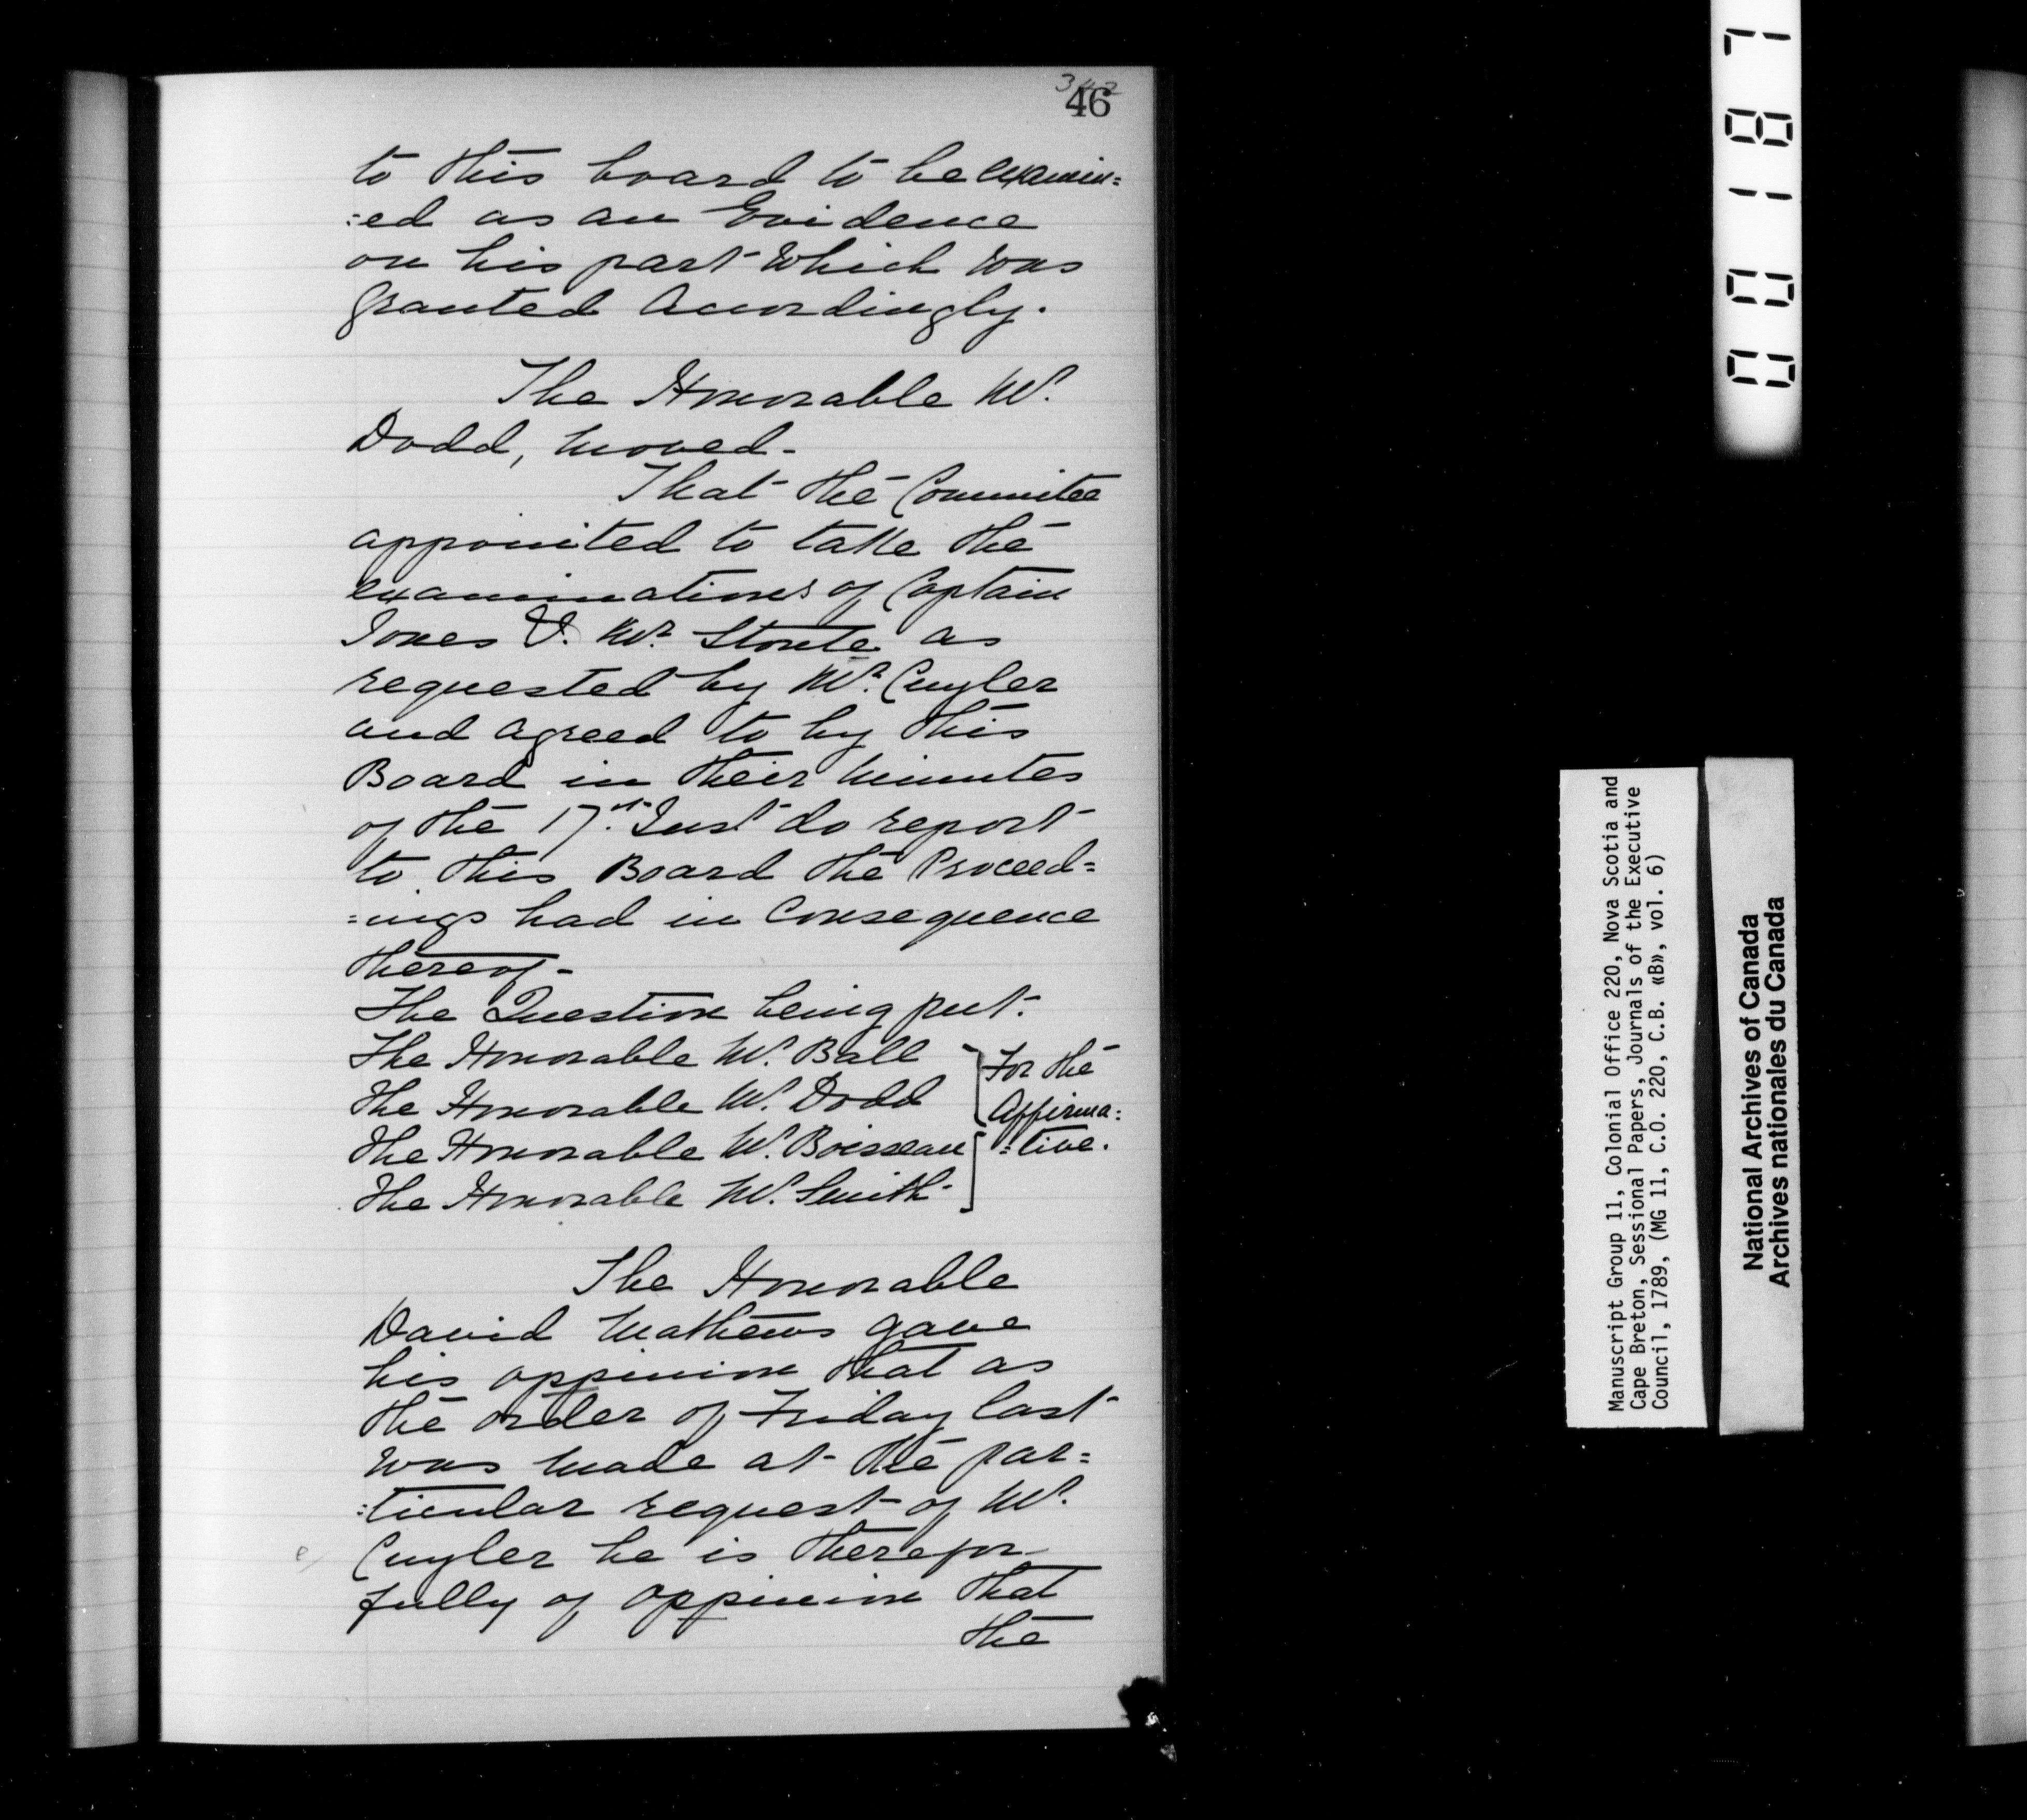 342
46
to this board to be examin=
:ed as an Evidence
on his part which was
granted Accordingly.
The Honorable Mr.
Dodd, moved -
That the Commitee
appointed to take the
examinations of Captain
Jones & Mr. Stoute as
requested by Mr. Cuyler
and agreed to by this
Board in their Minutes
of the 17th. Inst do report
to this Board the Proceed=
=ings had in Consequence
thereof -
The Question being put.
The Honorable Mr. Ball
The Honorable Mr. Dodd
The Honorable Mr. Boisseau
The Honorable Mr. Smith
For the
Affirma=
=tive.
The Honorable
David Mathews gave
his oppinion that as
the order of Friday last
was made at the par=
:ticular request of Mr.
e/ Cuyler he is therefor
fully of oppinion that
the
001187
Manuscript Group 11, Colonial Office 220, Nova Scotia and
Cape Breton, Sessional Papers, Journals of the Executive
Council, 1789, (MG 11, C.O. 220, C.B. «B», vol. 6)
National Archives of Canada
Archives nationales du Canada